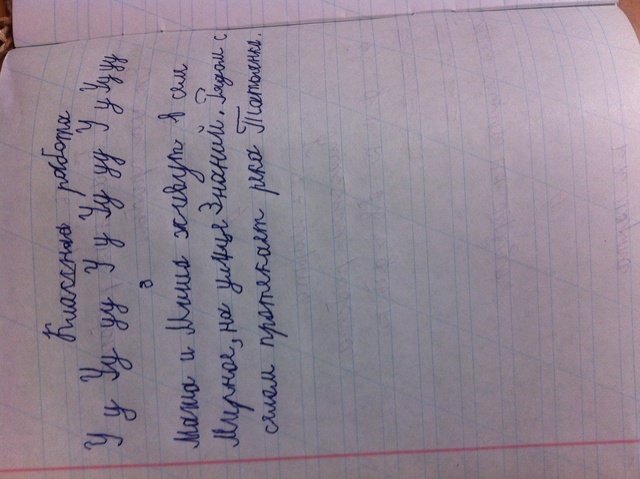 Классная работа
У у Уу уу У у Уу уу У у Уу уу
3
Маша и Миша живут в сел
Мирное, на улице Знаний. Рядом с
селом протекает река Татьянка.